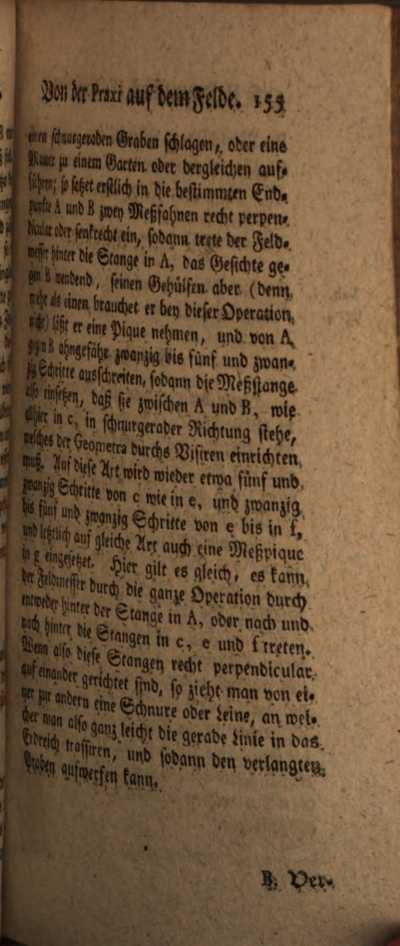 Von der Praxi auf dem Felde. 155
einen schnurgeraden Graben schlagen, oder eine
Mauer zu einem Garten oder dergleichen auf-
führen; so setzet erstlich in die bestimmten End-
punkte A und B zwey Meßfahnen recht perpen-
dicular oder senkrecht ein, sodann trete der Feld-
messer hinter die Stange in A, das Gesichte ge-
gen B wendend, seinen Gehülfen aber (denn
mehr als einen brauchet er bey dieser Operation
nicht) läßt er eine Pique nehmen, und von A
gegen B ohngefähr zwanzig bis fünf und zwan-
zig Schritte ausschreiten, sodann die Meßstange
also einsetzen, daß sie zwischen A und B, wie
allhier in c, in schnurgerader Richtung stehe,
welches der Geometra durchs Visiren einrichten
muß. Auf diese Art wird wieder etwa fünf und
zwanzig Schritte von c wie in e, und zwanzig
bis fünf und zwanzig Schritte von e bis in f,
und letztlich auf gleiche Art auch eine Meßpique
in g eingesetzet. Hier gilt es gleich, es kann
der Feldmesser durch die ganze Operation durch
entweder hinter der Stange in A, oder nach und
nach hinter die Stangen in c, e und f treten.
Wenn also diese Stangen recht perpendicular
auf einander gerichtet sind, so zieht man von ei-
ner zur andern eine Schnure oder Leine, an wel-
cher man also ganz leicht die gerade Linie in das
Erdreich trassiren, und sodann den verlangten
Graben aufwerfen kann.
B. Ver-